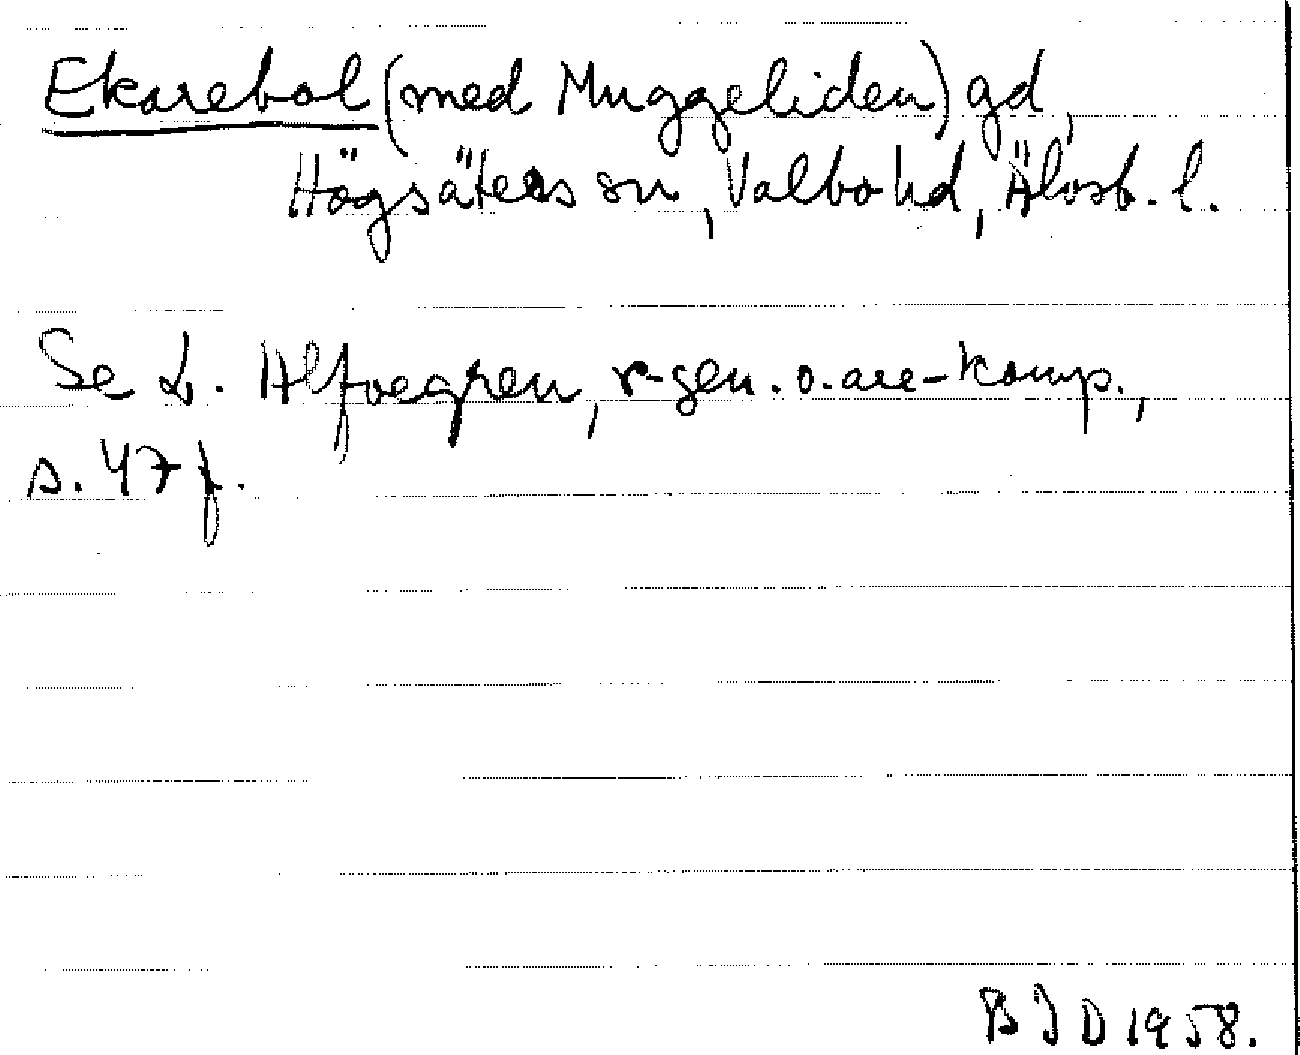 Ekarebol (med Muggeliden) gd,
Högsäters sn, Valbo hd, Älvsb. l.
Se L. Alfvegren, r-gen. o. are-komp.,
s. 47 f.
B J D 1958.